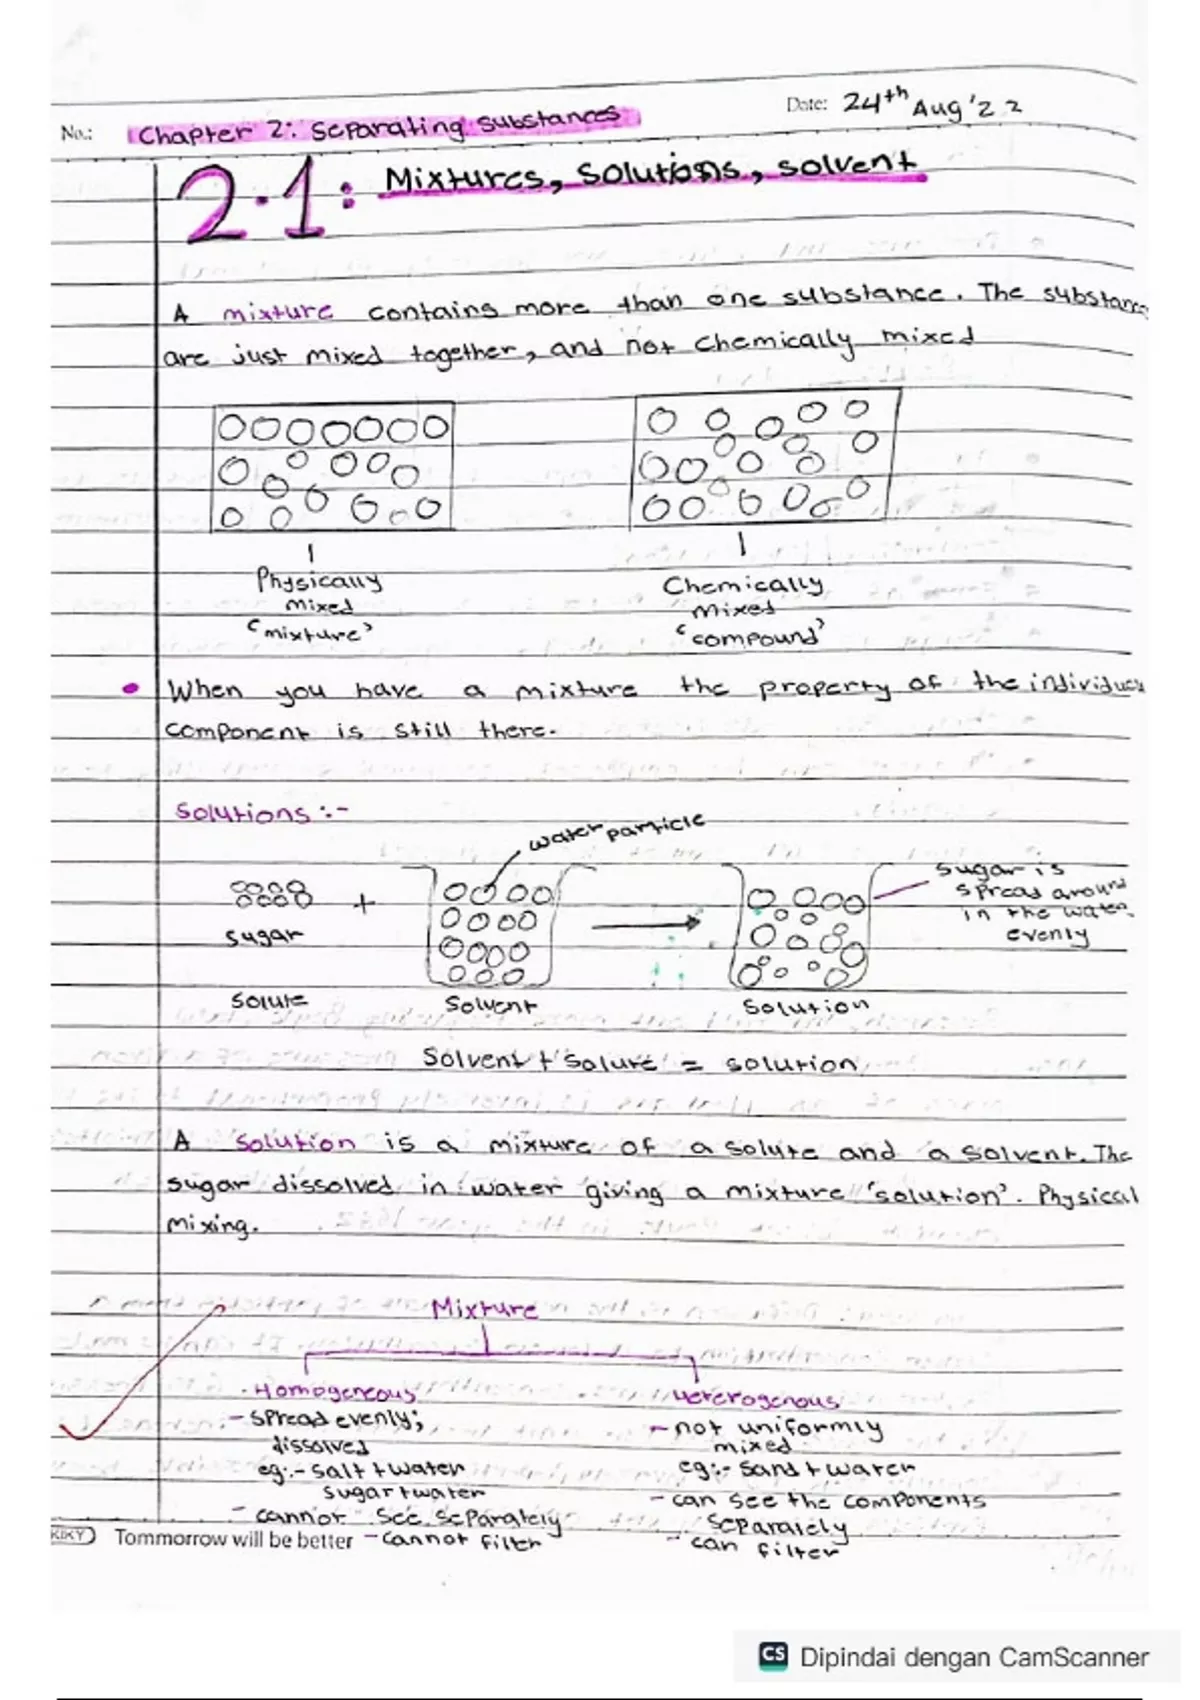 No.: Chapter 2: Separating Substances
Date: 24th Aug '22
2.1: Mixtures, Solutions, solvent
A mixture contains more than one substance. The substance
are just mixed together, and not chemically mixed
Physically mixed 'mixture'
Chemically mixed 'compound'
When you have a mixture the property of the individual
component is still there.
Solutions :-
water particle
sugar is
spread around
in the water
evenly
+
sugar
Solute
Solvent
Solution
Solvent + Solute = solution
A Solution is a mixture of a solute and a solvent. The
sugar dissolved in water giving a mixture 'solution'. Physical
mixing.
Mixture
Homogeneous
- Spread evenly;
dissolved
eg:- Salt + water
Sugar + water
- cannot see separately
- cannot filter
Heterogenous
- not uniformly
mixed
eg:- Sand + water
- can see the components
separately
- can filter
KIKY Tommorrow will be better
CS Dipindai dengan CamScanner